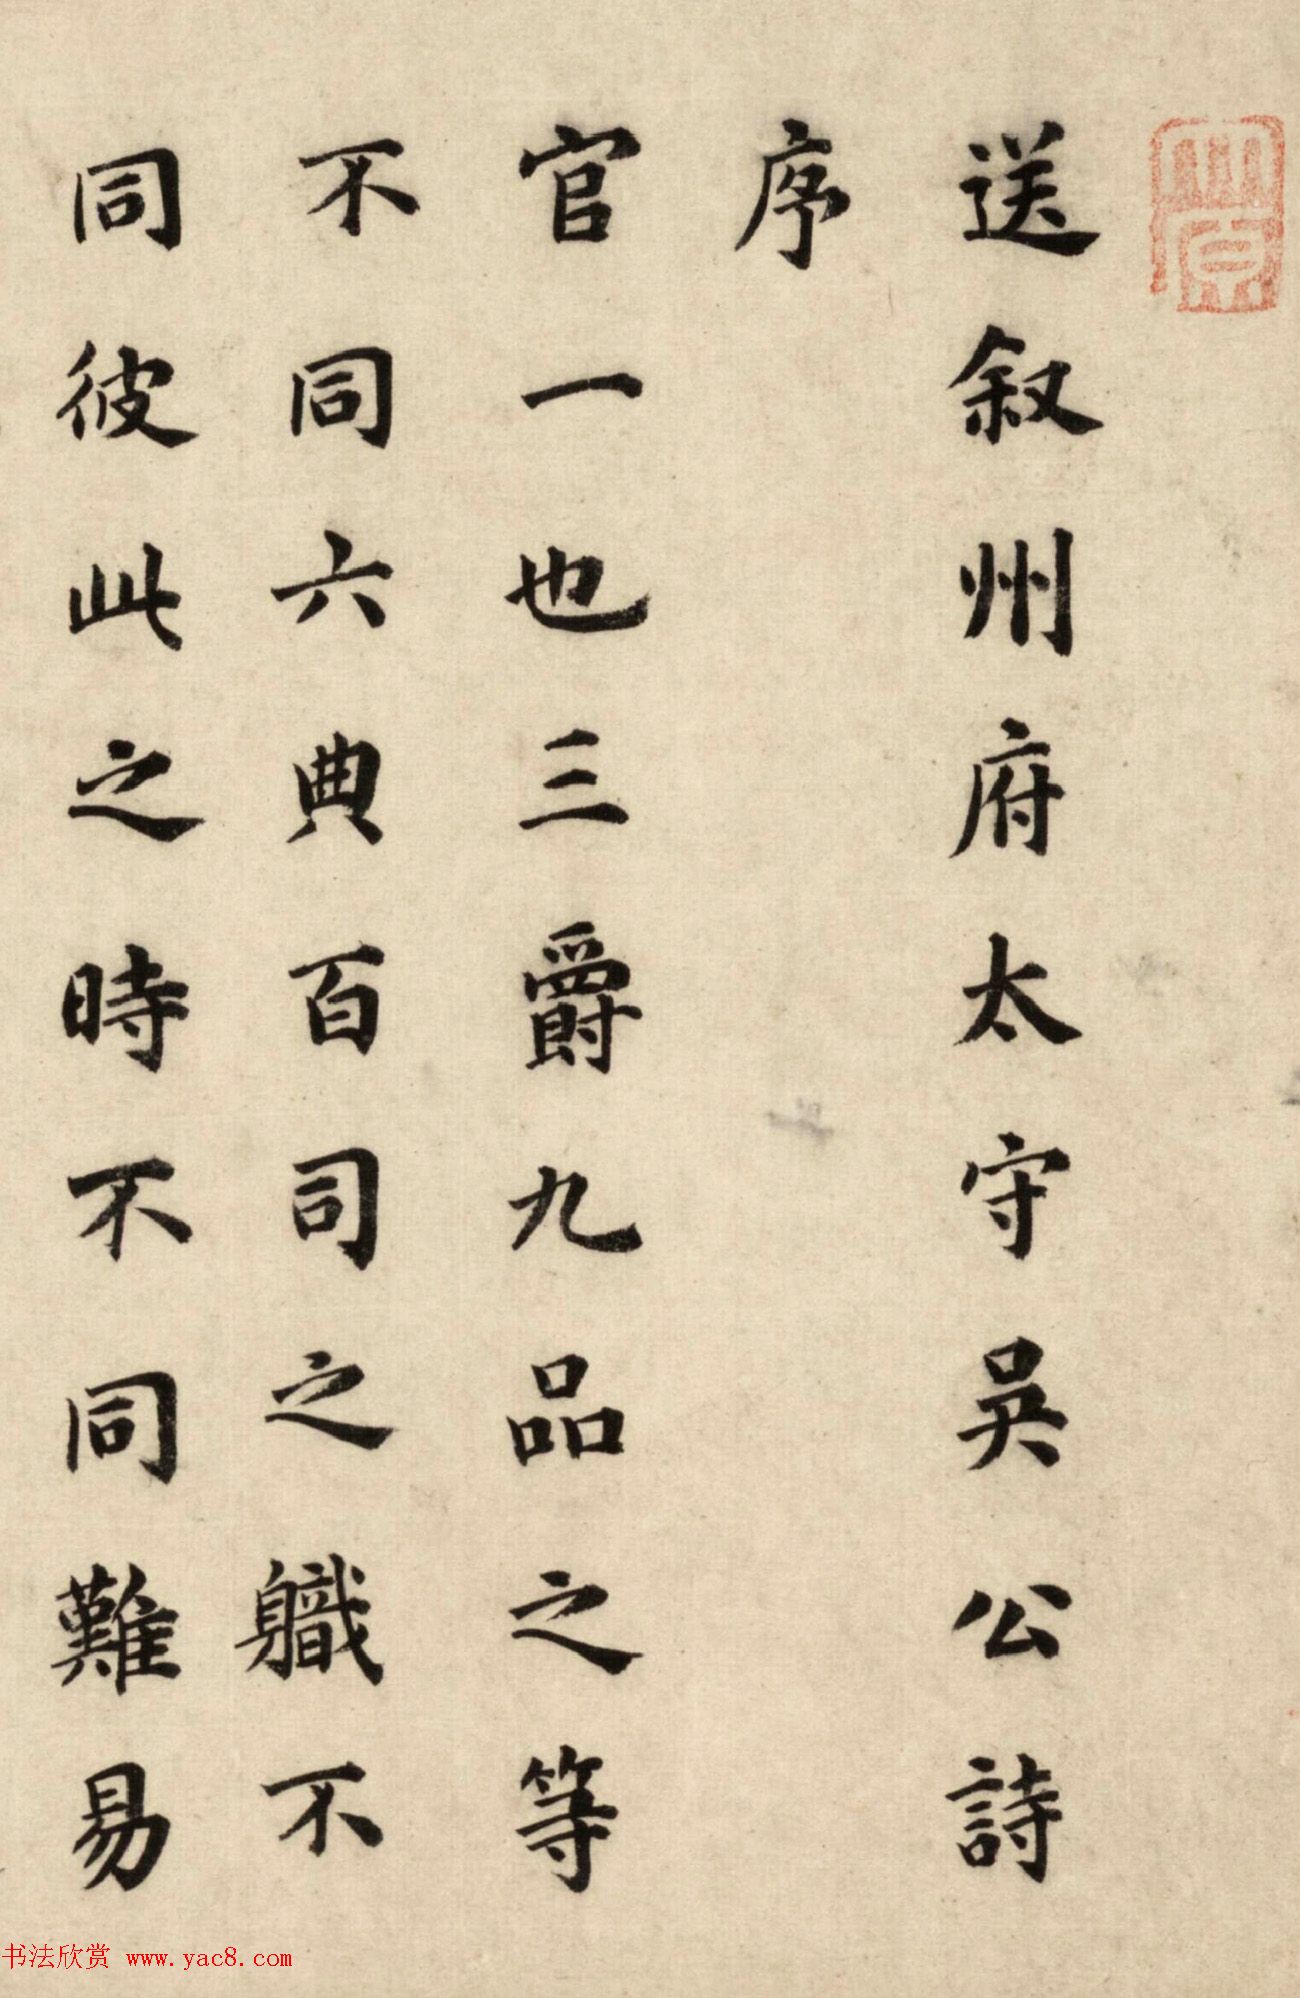 送叙州府太守吳公詩
序
官一也三爵九品之等
不同六典百司之軄不
同彼此之時不同難易
书法欣赏 www.yac8.com